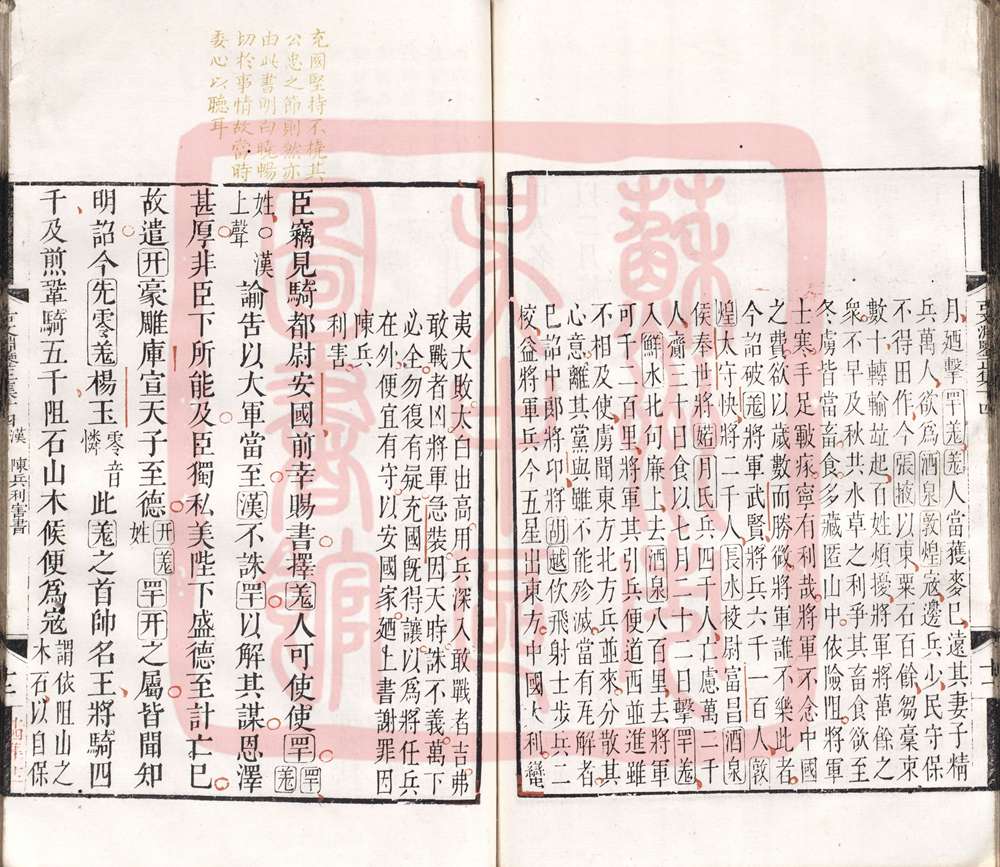 月廼擊罕羌人當獲麥已遠其妻子精
兵萬人欲爲酒泉敦煌寇邊兵少民守保
不得田作今張掖以東粟石百餘芻稾束
數十轉輸竝起百姓煩擾將軍將萬餘之
衆不早及秋共水草之利爭其畜食欲至
冬虜皆當畜食多藏匿山中依險阻將軍
士寒手足皸瘃寧有利哉將軍不念中國
之費欲以歲數而勝微將軍誰不樂此者
今詔破羌將軍武賢將兵六千一百人敦
煌太守快將二千人長水校尉富昌酒泉
侯奉世將婼月氏兵四千人亡慮萬二千
人齎三十日食以七月二十二日擊罕羌
入鮮水北句廉上去酒泉八百里去將軍
可千二百里將軍其引兵便道西並進雖
不相及使虜聞東方北方兵並來分散其
心意離其黨與雖不能殄滅當有瓦解者
已詔中郎將卬將胡越佽飛射士步兵二
校益將軍兵今五星出東方中國大利蠻
夷大敗太白出高用兵深入敢戰者吉弗
敢戰者凶將軍急裝因天時誅不義萬下
必全勿復有疑充國旣得讓以爲將任兵
在外便宜有守以安國家廼上書謝罪因
陳兵
利害
臣竊見騎都尉安國前幸賜書擇羌人可使使罕罕羌
姓上聲漢諭告以大軍當至漢不誅罕以解其謀恩澤
甚厚非臣下所能及臣獨私美陛下盛德至計亡已
故遣幵豪雕庫宣天子至德幵羌姓罕幵之屬皆聞知
明詔今先零羌楊王零音憐此羌之首帥名王將騎四
千及煎鞏騎五千阻石山木候便爲寇謂依阻山之木石以自保
充國堅持不撓其
公忠之節則然亦
由此書明白曉暢
切於事情故當時
委心以聽耳
漢 陳兵利害書
蘇州大學圖書館